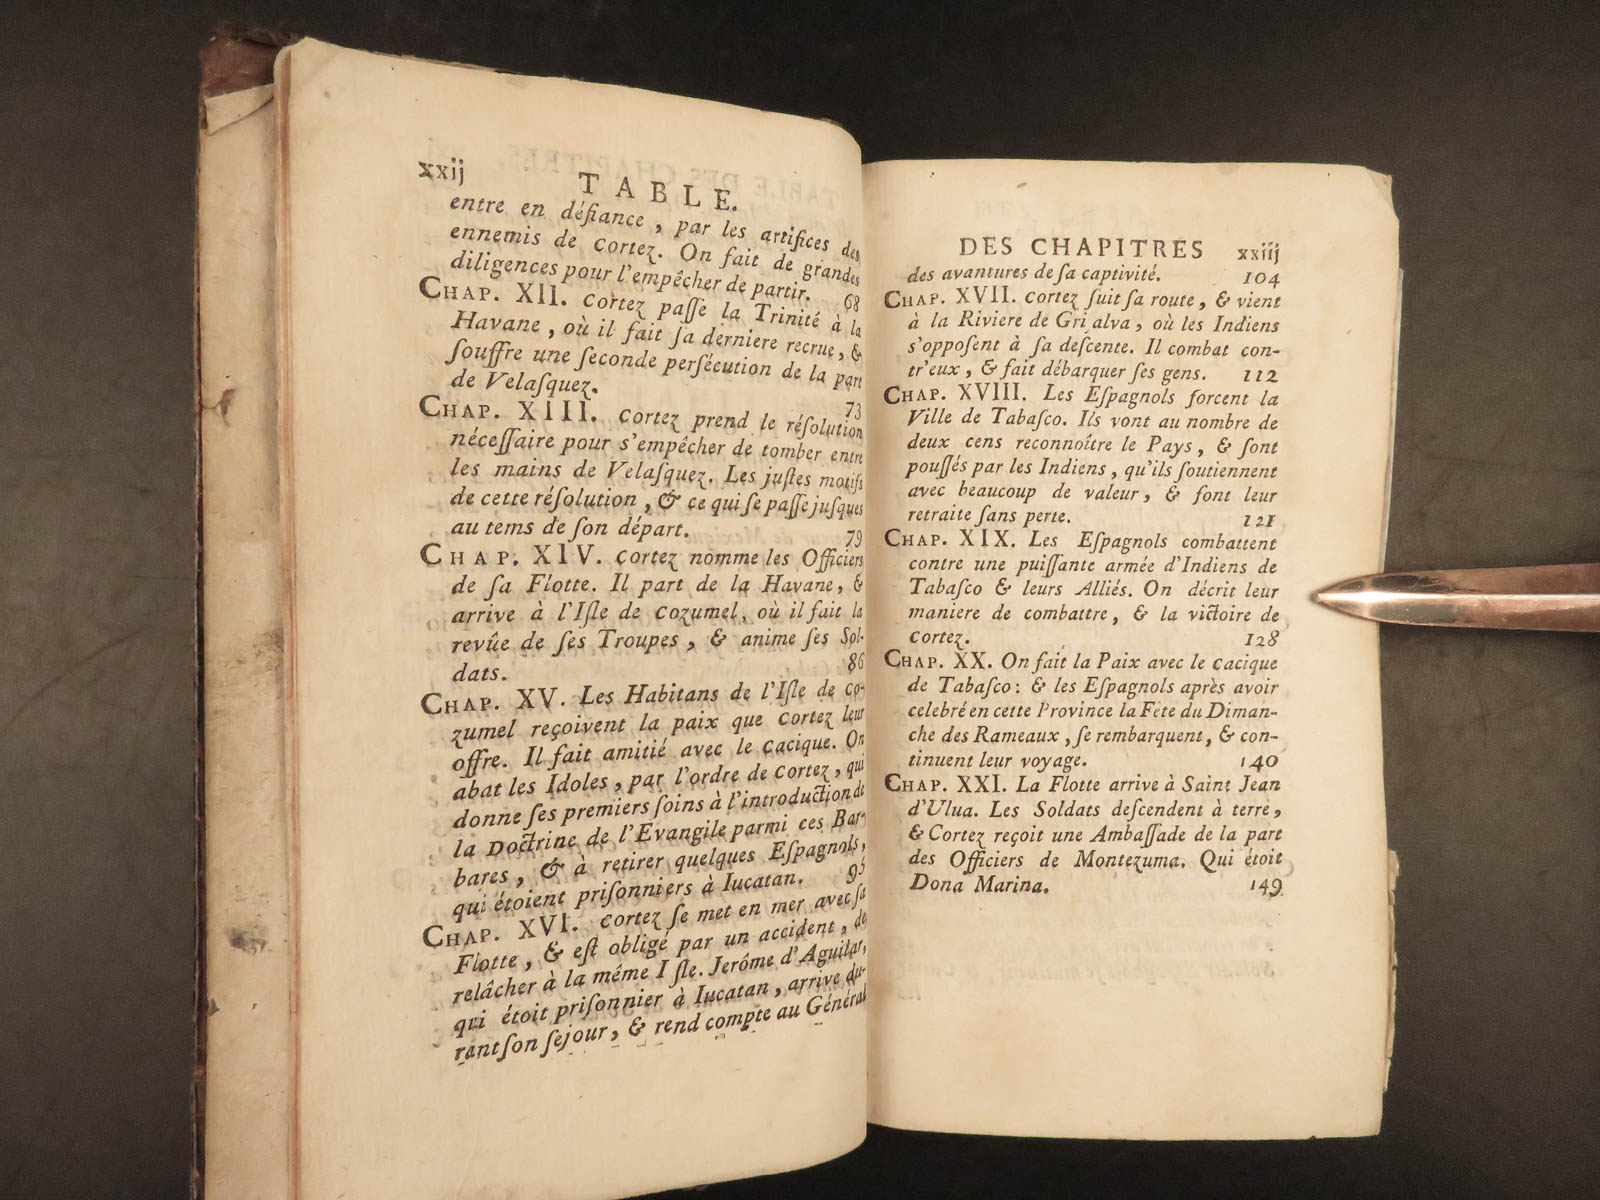 xxij
TABLE.
entre en défiance, par les artifices des
ennemis de Cortez. On fait de grandes
diligences pour l'empêcher de partir. 68
CHAP. XII. Cortez paſſe la Trinité à la
Havane, où il fait ſa derniere recrue, &
ſouffre une ſeconde perſécution de la part
de Velaſquez. 73
CHAP. XIII. Cortez prend le réſolution
néceſſaire pour s'empêcher de tomber entre
les mains de Velaſquez. Les juſtes motifs
de cette réſolution, & ce qui ſe paſſe juſques
au tems de ſon départ. 79
CHAP. XIV. Cortez nomme les Officiers
de ſa Flotte. Il part de la Havane, &
arrive à l'Iſle de Cozumel, où il fait la
revûe de ſes Troupes, & anime ſes Sol-
dats. 86
CHAP. XV. Les Habitans de l'Iſle de Co-
zumel reçoivent la paix que Cortez leur
offre. Il fait amitié avec le Cacique. On
abat les Idoles, par l'ordre de Cortez, qui
donne ſes premiers ſoins à l'introduction de
la Doctrine de l'Evangile parmi ces Bar-
bares, & à retirer quelques Eſpagnols,
qui étoient priſonniers à Iucatan. 95
CHAP. XVI. Cortez ſe met en mer avec ſa
Flotte, & eſt obligé par un accident, de
relâcher à la même Iſle. Jerôme d'Aguilar,
qui étoit priſonnier à Iucatan, arrive du-
rant ſon ſejour, & rend compte au Général
DES CHAPITRES xxiij
des avantures de ſa captivité. 104
CHAP. XVII. Cortez ſuit ſa route, & vient
à la Riviere de Grijalva, où les Indiens
s'oppoſent à ſa deſcente. Il combat con-
tr'eux, & fait débarquer ſes gens. 112
CHAP. XVIII. Les Eſpagnols forcent la
Ville de Tabaſco. Ils vont au nombre de
deux cens reconnoître le Pays, & ſont
pouſſés par les Indiens, qu'ils ſoutiennent
avec beaucoup de valeur, & font leur
retraite ſans perte. 121
CHAP. XIX. Les Eſpagnols combattent
contre une puiſſante armée d'Indiens de
Tabaſco & leurs Alliés. On décrit leur
maniere de combattre, & la victoire de
Cortez. 128
CHAP. XX. On fait la Paix avec le Cacique
de Tabaſco: & les Eſpagnols après avoir
celebré en cette Province la Fête du Diman-
che des Rameaux, ſe rembarquent, & con-
tinuent leur voyage. 140
CHAP. XXI. La Flotte arrive à Saint Jean
d'Ulua. Les Soldats deſcendent à terre,
& Cortez reçoit une Ambaſſade de la part
des Officiers de Montezuma. Qui étoit
Dona Marina. 149